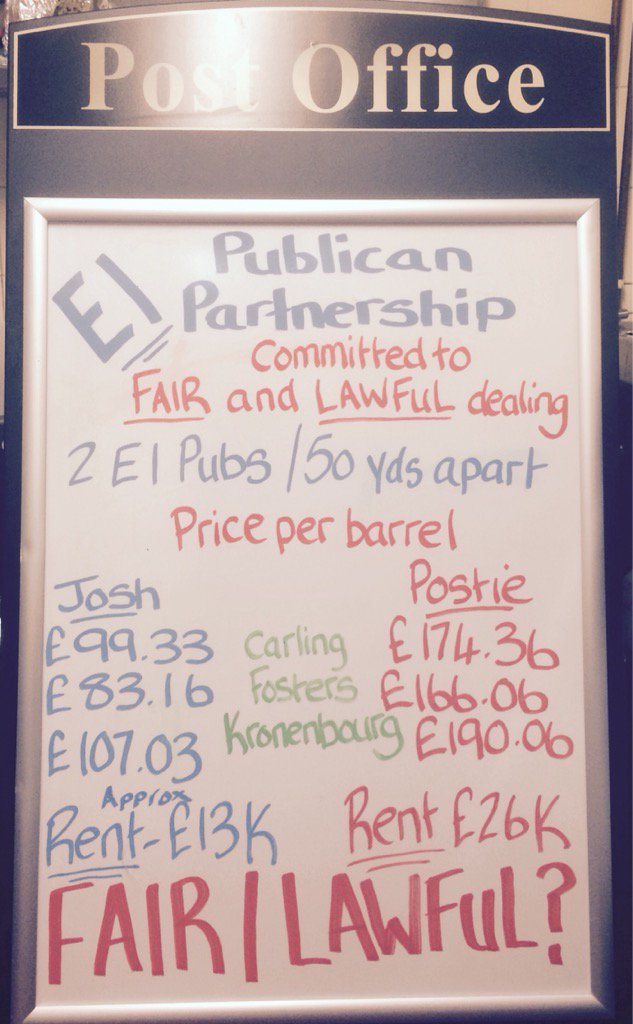 Post Office
EI Publican
Partnership
Committed to
FAIR and LAWFUL dealing
2 EI Pubs / 50 yds apart
Price per barrel
Josh Postie
£99.33 Carling £174.36
£83.16 Fosters £166.06
£107.03 Kronenbourg £190.06
Approx
Rent - £13K Rent £26K
FAIR / LAWFUL?